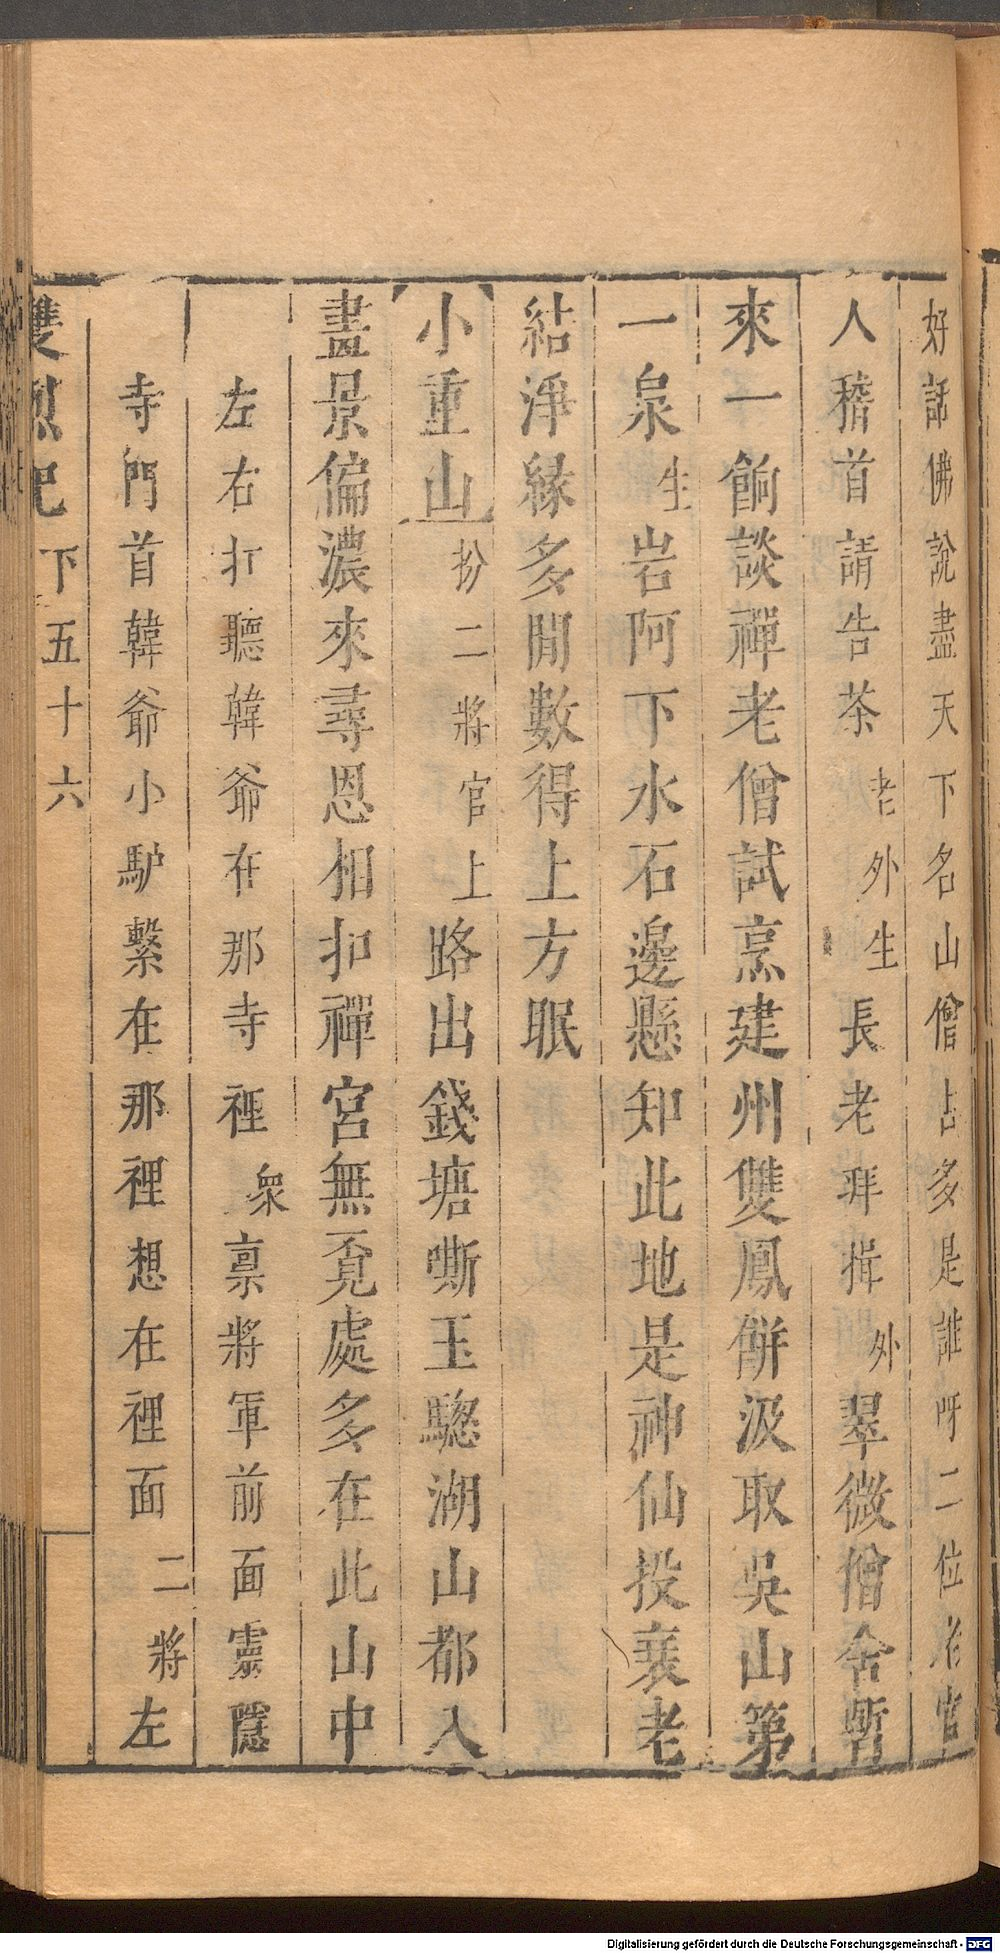 好話佛說盡天下名山僧占多是誰呀二位老官
人稽首請告茶老外生長老拜揖外翠微僧舍暫
來一餉談禪老僧試烹建州雙鳳餅汲取吳山第
一泉生岩阿下水石邊懸知此地是神仙投衰老
結淨緣多閒數得上方眠
小重山扮二將官上路出錢塘嘶玉驄湖山都入
盡景偏濃來尋恩相扣禪宮無覓處多在此山中
左右打聽韓爺在那寺裡衆稟將軍前面靈隱
寺門首韓爺小馿繫在那裡想在裡面二將左
雙烈記 下五十六
Digitalisierung gefördert durch die Deutsche Forschungsgemeinschaft - DFG